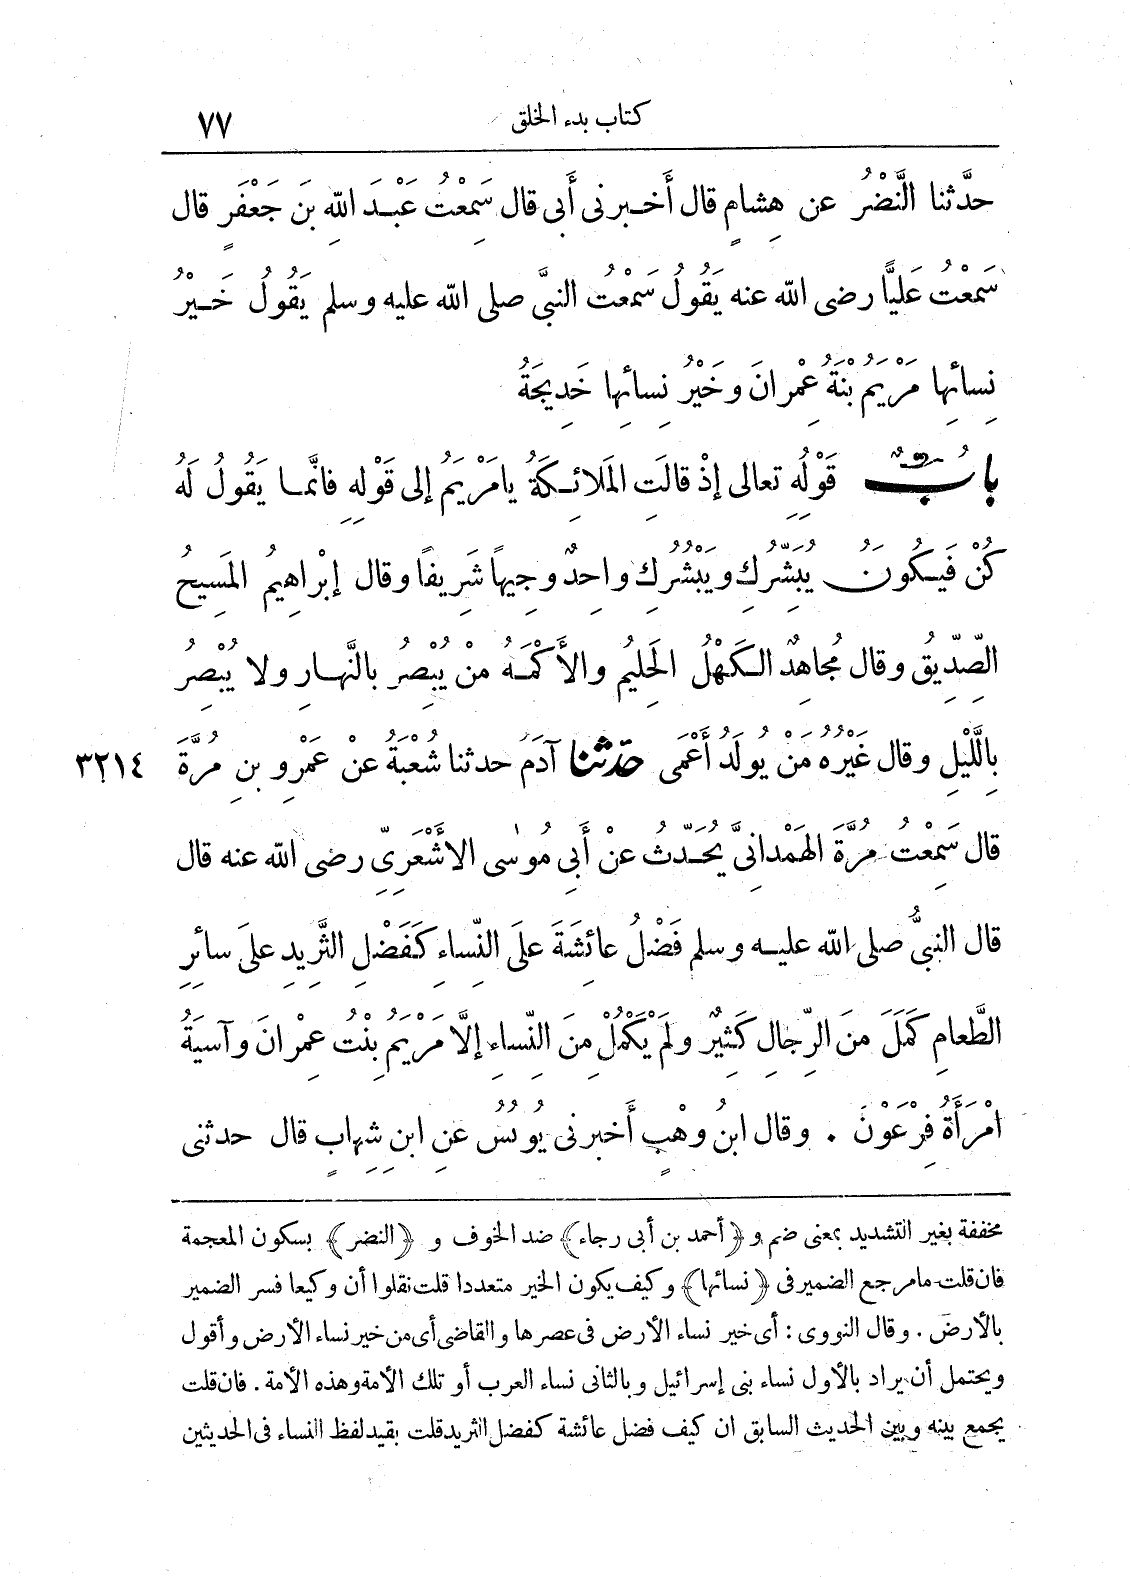 كتاب بدء الخلق ٧٧
حدَّثنا النَّضْرُ عن هِشامٍ قال أَخـبرنى أَبى قال سَمِعْتُ عَبْـدَ اللهِ بنَ جَعْفَرٍ قال
سَمِعْتُ عَلِيًّا رضى الله عنه يَقُولُ سَمِعْتُ النبىَّ صلى الله عليه وسلم يَقُولُ خَـيْرُ
نِسائِها مَرْيَمُ بْنَةُ عِمْرانَ وخَيْرُ نِسائِها خَدِيجَةُ
بابُ قَوْلِهِ تعالى إذْ قالَتِ المَلائِـكَةُ يامَرْيَمُ إلى قَوْلِهِ فانَّمـا يَقُولُ لَهُ
كُنْ فَيَـكُونُ يُبَشِّرُكِ ويَبْشُرُكِ واحِدٌ وجِيهاً شَرِيفًا وقال إبْراهِيمُ المَسِيحُ
الصِّدِّيقُ وقال مُجاهِدٌ الـكَهْلُ الحَلِيمُ والأَكْمَـهُ مَنْ يُبْصِرُ بالنَّهـارِ ولا يُبْصِرُ
بِاللَّيْلِ وقال غَيْرُهُ مَنْ يُولَدُ أَعْمَى حدّثنا آدَمُ حدثنا شُعْبَةُ عَنْ عَمْرِو بنِ مُرَّةَ ٣٢١٤
قال سَمِعْتُ مُرَّةَ الهَمْدانِىَّ يُحَـدِّثُ عَنْ أَبِى مُوسٰى الأَشْعَرِىِّ رضى الله عنه قال
قال النبىُّ صلى الله عليـه وسلم فَضْلُ عائِشَةَ علَى النِّساءِ كَفَضْلِ الثَّرِيدِ علَى سائِرِ
الطَّعامِ كَمَلَ مِنَ الرِّجالِ كَثِيرٌ ولَمْ يَكْمُلْ مِنَ النِّساءِ إلَّا مَرْيَمُ بِنْتُ عِمْرانَ وآسِيَةُ
امْرَأَةُ فِرْعَوْنَ . وقال ابنُ وهْبٍ أَخبرنى يُونُسُ عَنِ ابنِ شِهابٍ قال حدثنى
مخففة بغير التشديد بمعنى ضم و (أحمد بن أبى رجاء) ضد الخوف و (النضر) بسكون المعجمة
فان قلت ما مرجع الضمير فى (نسائها) وكيف يكون الخير متعددا قلت نقلوا أن وكيعا فسر الضمير
بالأرض . وقال النووى : أى خير نساء الأرض فى عصرها والقاضى أى من خير نساء الأرض وأقول
ويحتمل أن يراد بالأول نساء بنى إسرائيل وبالثانى نساء العرب أو تلك الأمة وهذه الأمة . فان قلت
يجمع بينه وبين الحديث السابق ان كيف فضل عائشة كفضل الثريد قلت بقيد لفظ النساء فى الحديثين